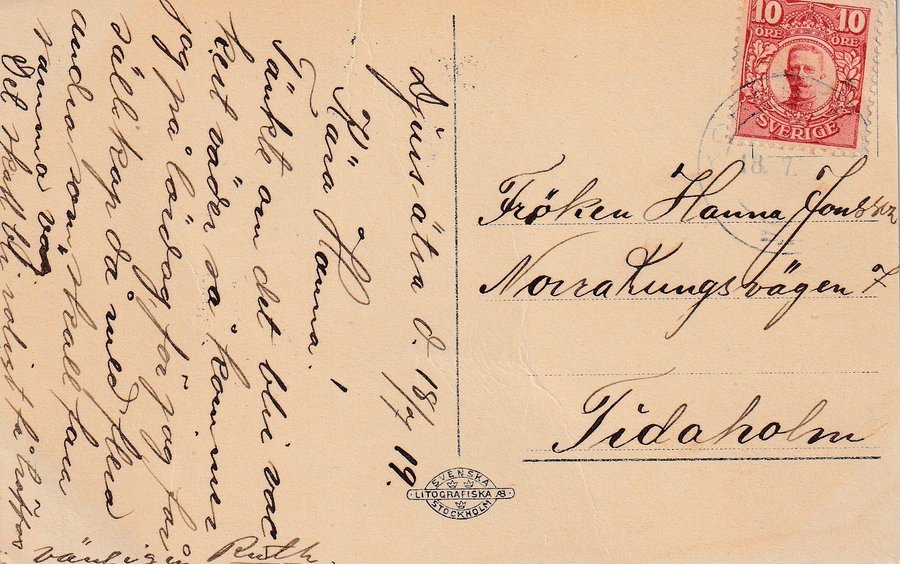 Djursätra d. 18/7 19.
Kära Hanna!
Tänk om det blir vac
kert väder så kommer
jag på lördag för jag får
sällskap då med flera
andra som skall fara
samma väg
Det skall bli roligt få träffas
vänligen Ruth.
10 10
ÖRE ÖRE
SVERIGE
18. 7.
Fröken Hanna Jonsson
Norra Kungsvägen 7
Tidaholm
SVENSKA
LITOGRAFISKA AB
STOCKHOLM